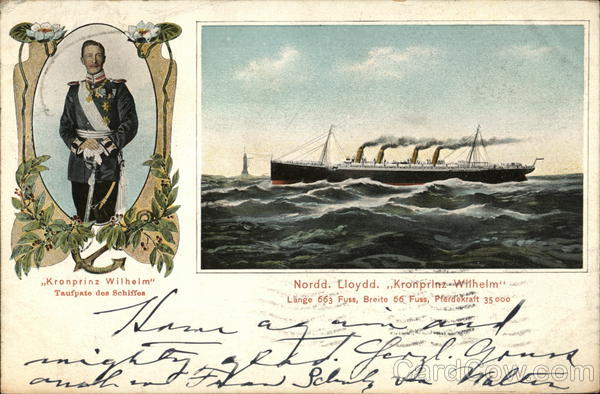 „Kronprinz Wilhelm"
Taufpate des Schiffes
Nordd. Lloydd. „Kronprinz-Wilhelm"
Länge 663 Fuss, Breite 66 Fuss, Pferdekraft 35000
Home again and
mighty glad. Herzl. Gruss
auch v. Frau
CardCow.com